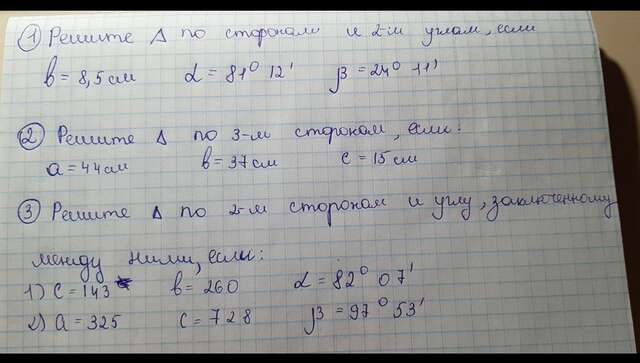 ① Решите Δ по сторонам и 2-м углам, если
b = 8,5 см α = 81° 12' β = 24° 11'
② Решите Δ по 3-м сторонам, если:
a = 44 см b = 37 см c = 15 см
③ Решите Δ по 2-м сторонам и углу, заключенному
между ними, если:
1) c = 143 b = 260 α = 82° 07'
2) a = 325 c = 728 β = 97° 53'